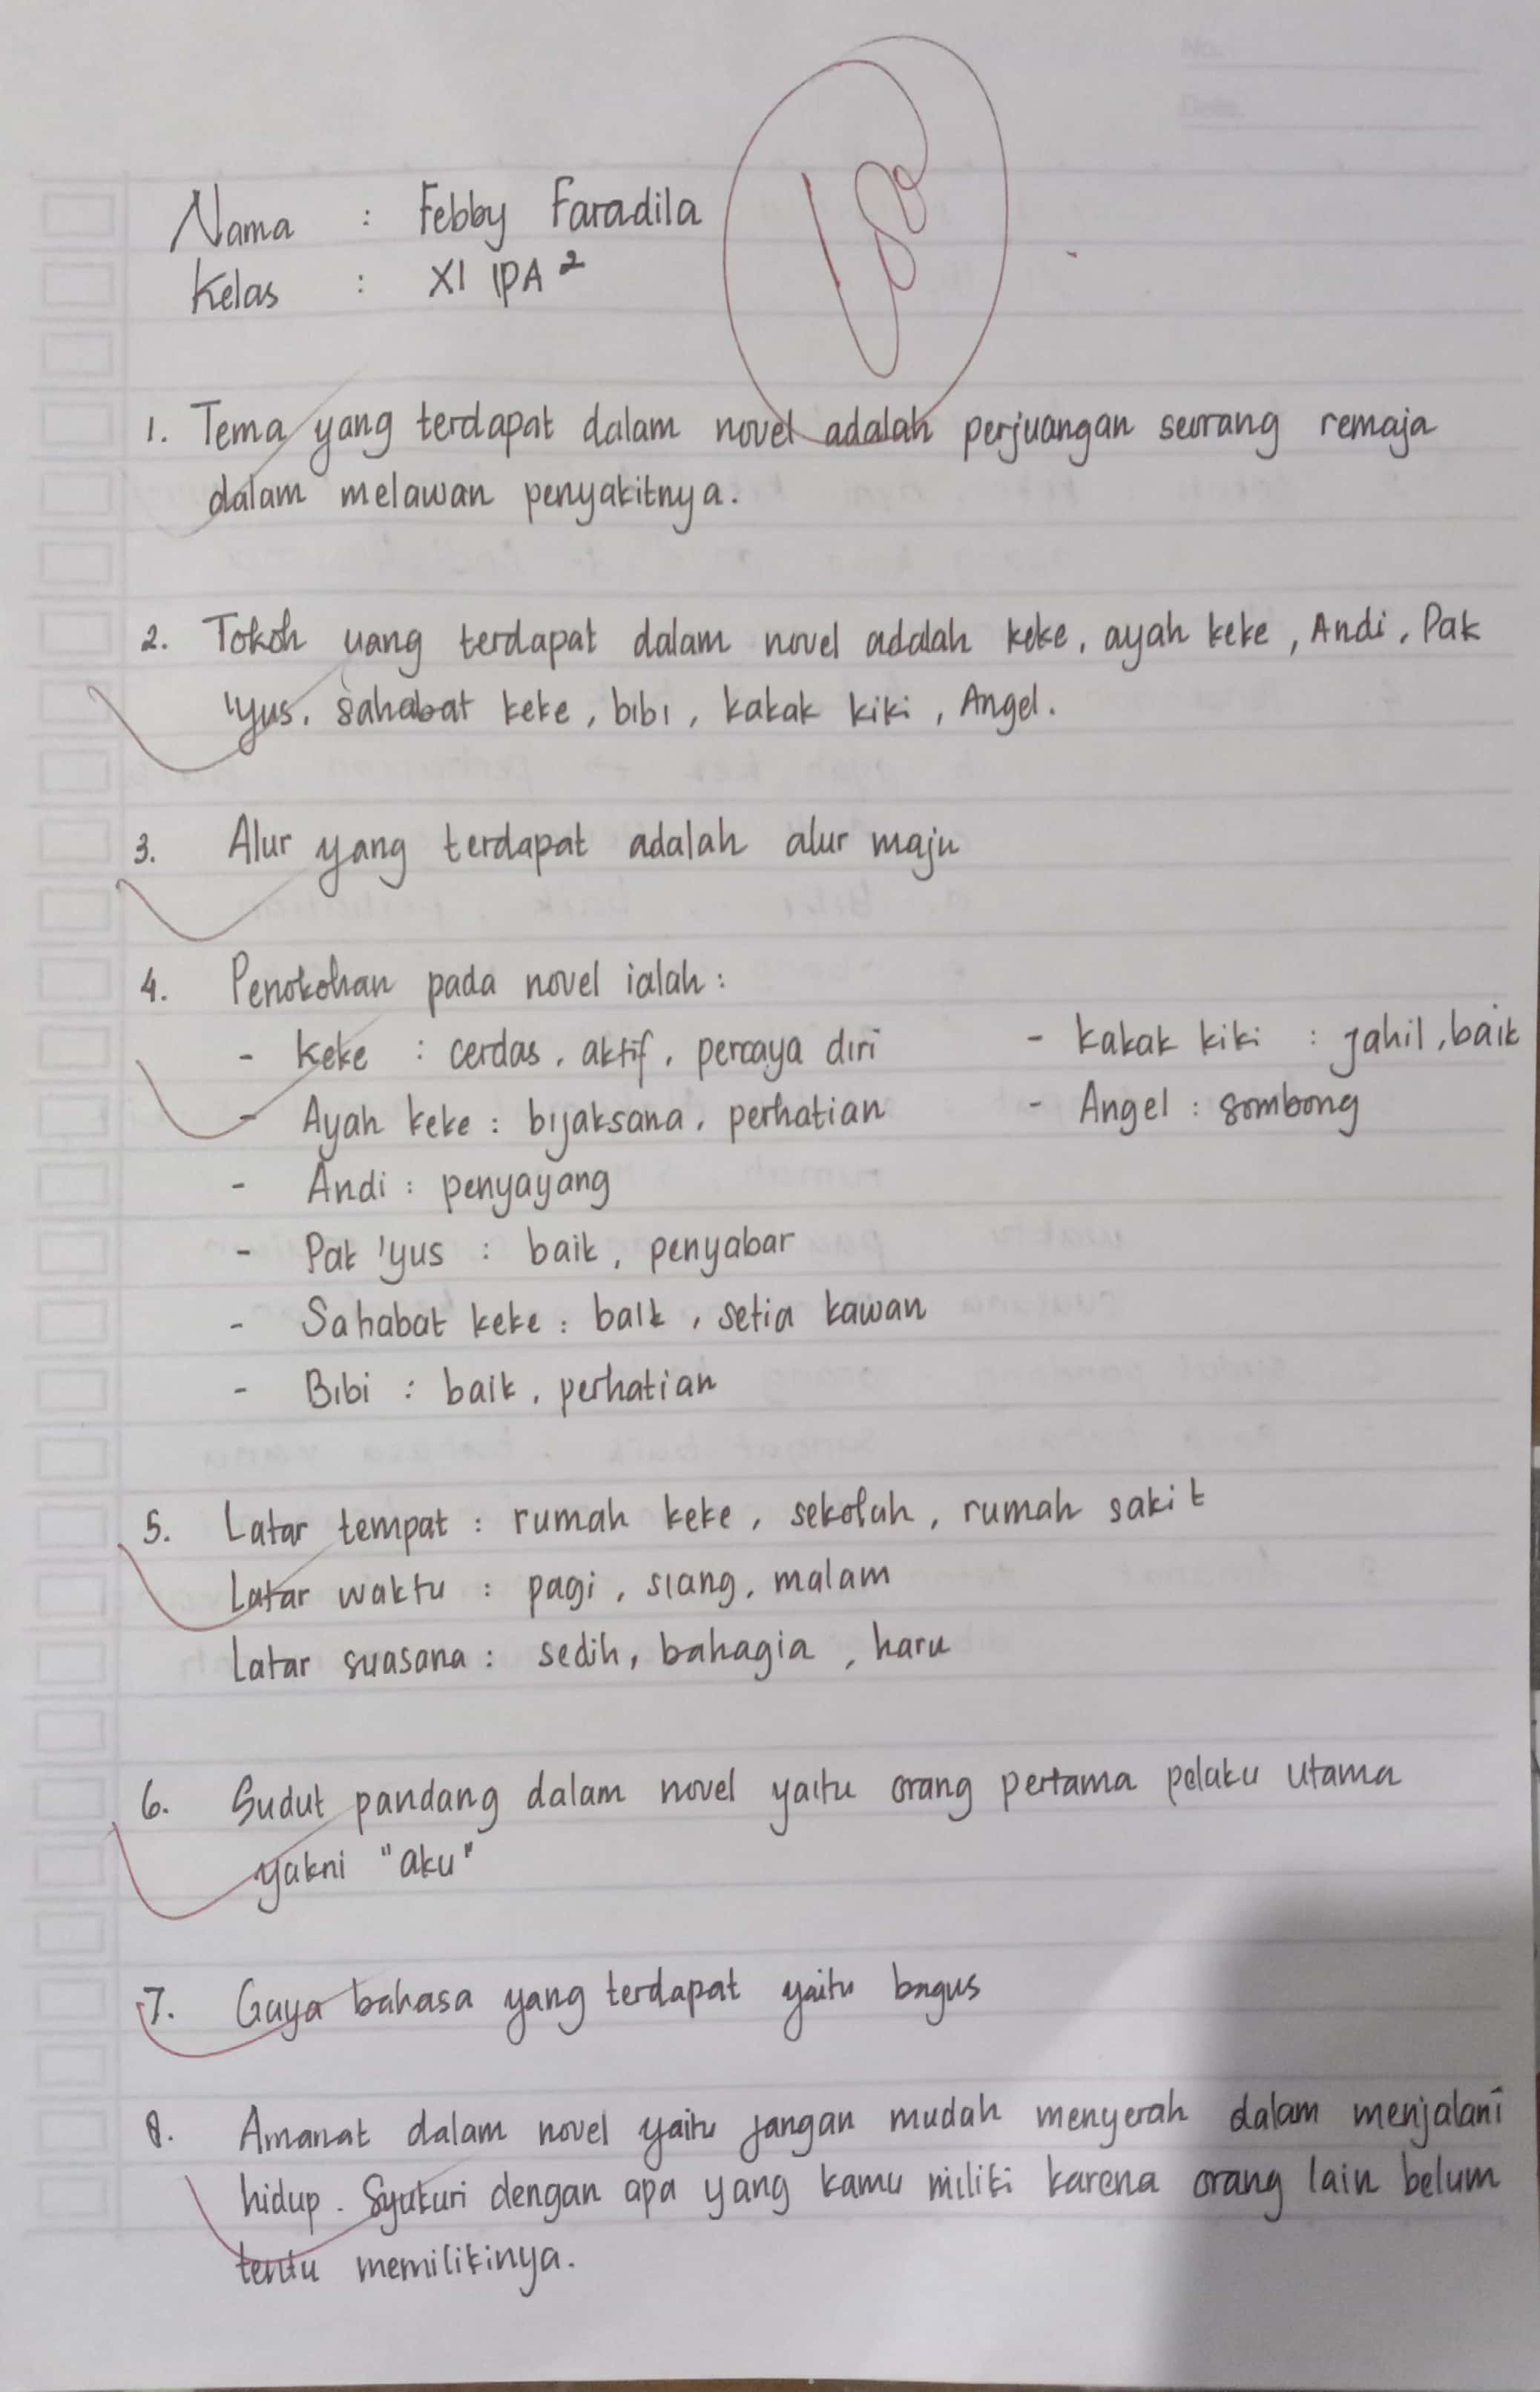 No.
Date.
Nama : Febby Faradila
Kelas : XI IPA 2
1. Tema yang terdapat dalam novel adalah perjuangan seorang remaja
dalam melawan penyakitnya.
2. Tokoh yang terdapat dalam novel adalah keke, ayah keke, Andi, Pak
'Yus, sahabat keke, bibi, kakak kiki, Angel.
3. Alur yang terdapat adalah alur maju
4. Penokohan pada novel ialah :
- keke : cerdas, aktif, percaya diri - kakak kiki : jahil, baik
- Ayah keke : bijaksana, perhatian - Angel : sombong
- Andi : penyayang
- Pak 'yus : baik, penyabar
- Sahabat keke : baik, setia kawan
- Bibi : baik, perhatian
5. Latar tempat : rumah keke, sekolah, rumah sakit
Latar waktu : pagi, siang, malam
Latar suasana : sedih, bahagia, haru
6. Sudut pandang dalam novel yaitu orang pertama pelaku utama
yakni "aku"
7. Gaya bahasa yang terdapat yaitu bagus
8. Amanat dalam novel yaitu jangan mudah menyerah dalam menjalani
hidup. Syukuri dengan apa yang kamu miliki karena orang lain belum
tentu memilikinya.